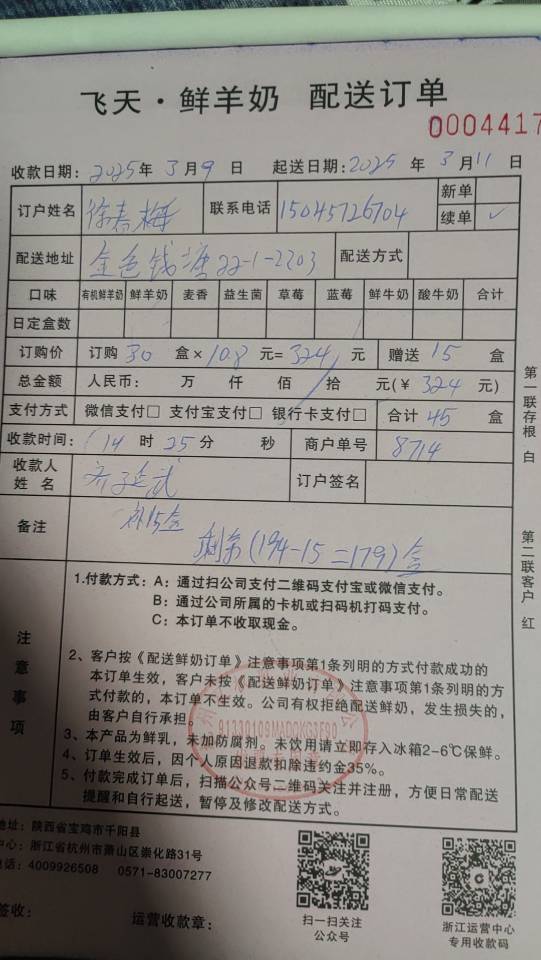 飞天·鲜羊奶 配送订单
0004417
收款日期: 2025年 3月9日 起送日期: 2025年 3月11日
订户姓名 徐春梅 联系电话 15045726704 新单
续单 ✓
配送地址 金色钱塘22-1-2203 配送方式
口味 有机鲜羊奶 鲜羊奶 麦香 益生菌 草莓 蓝莓 鲜牛奶 酸牛奶 合计
日定盒数
订购价 订购 30 盒×10.8元=324元 赠送 15 盒
总金额 人民币: 万 仟 佰 拾 元(¥ 324 元)
支付方式 微信支付□ 支付宝支付□ 银行卡支付□ 合计 45 盒
收款时间: 14时25分 秒 商户单号 8714
收款人姓名 订户签名
备注 补15盒
剩余(194-15=179)盒
第一联存根 白
第二联客户 红
注意事项
1.付款方式: A: 通过扫公司支付二维码支付宝或微信支付。
B: 通过公司所属的卡机或扫码机打码支付。
C: 本订单不收取现金。
2、客户按《配送鲜奶订单》注意事项第1条列明的方式付款成功的
本订单生效，客户未按《配送鲜奶订单》注意事项第1条列明的方
式付款的，本订单不生效。公司有权拒绝配送鲜奶，发生损失的，
由客户自行承担。
3、本产品为鲜乳，未加防腐剂。未饮用请立即存入冰箱2-6℃保鲜。
4、订单生效后，因个人原因退款扣除违约金35%。
5、付款完成订单后，扫描公众号二维码关注并注册，方便日常配送
提醒和自行起送，暂停及修改配送方式。
地址: 陕西省宝鸡市千阳县
中心: 浙江省杭州市萧山区崇化路31号
电话: 4009926508 0571-83007277
签收: 运营收款章:
扫一扫关注
公众号
浙江运营中心
专用收款码